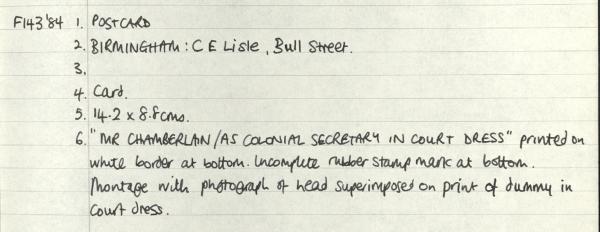 F143'84 1. POSTCARD
2. BIRMINGHAM: C E Lisle, Bull Street.
3.
4. Card.
5. 14.2 x 8.8cms.
6. "MR CHAMBERLAIN/AS COLONIAL SECRETARY IN COURT DRESS" printed on
white border at bottom. Incomplete rubber stamp mark at bottom.
Montage with photograph of head superimposed on print of dummy in
court dress.